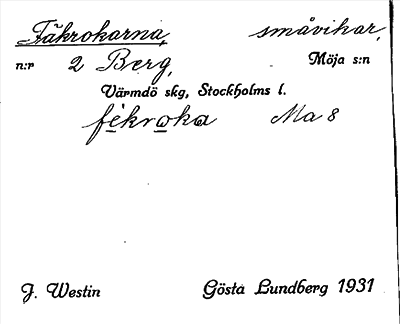 Fäkrokarna, småvikar,
n:r 2 Berg, Möja s:n
Värmdö skg, Stockholms l.
fékroka Ma 8
J. Westin Gösta Lundberg 1931